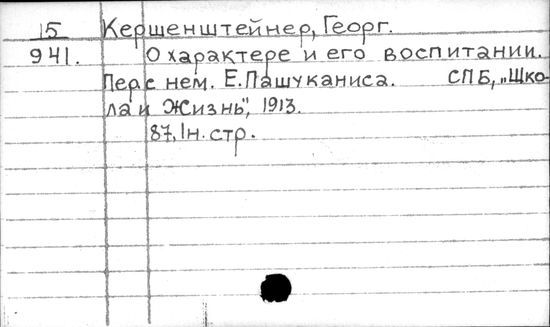 15 Кершенштейнер, Георг.
941. О характере и его воспитании.
Пер с нем. Е. Пашуканиса. СПБ, „Шко-
ла и Жизнь", 1913.
87, 1н. стр.